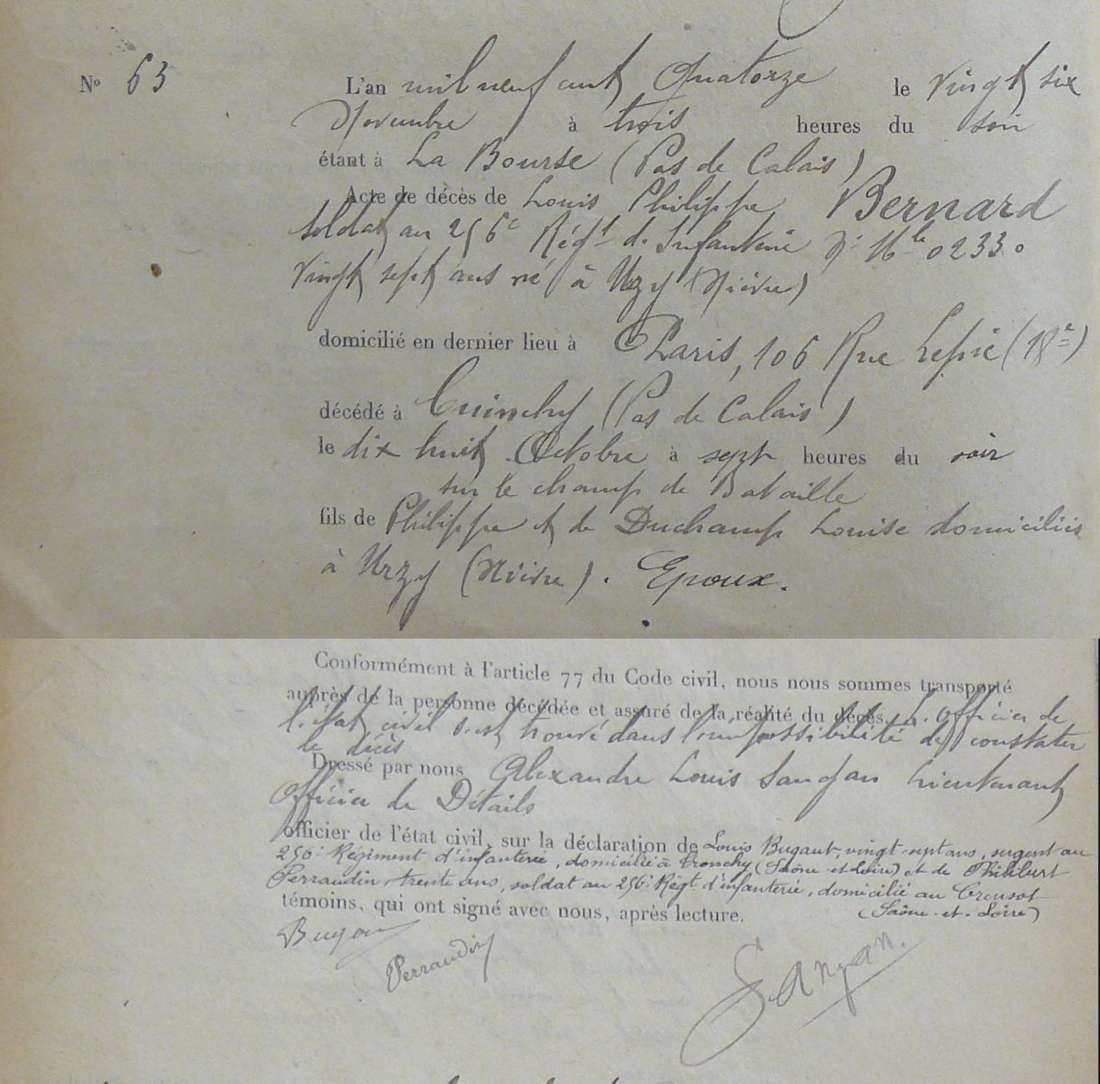 N° 63
L'an mil neuf cent Quatorze le vingt six
Novembre à trois heures du soir
étant à La Bourse (Pas de Calais)
Acte de décès de Louis Philippe Bernard
soldat au 256e Régt d'Infanterie No Mle 02330
vingt sept ans né à Urzy (Nièvre)
domicilié en dernier lieu à Paris, 106 Rue Lepic (18e)
décédé à Cuinchy (Pas de Calais)
le dix huit Octobre à sept heures du soir
sur le champ de Bataille
fils de Philippe et de Duchamp Louise domiciliés
à Urzy (Nièvre). Epoux.
Conformément à l'article 77 du Code civil, nous nous sommes transporté
auprès de la personne décédée et assuré de la réalité du décès. L'Officier de
l'état civil s'est trouvé dans l'impossibilité de constater
le décès
Dressé par nous Alexandre Louis Sangan Lieutenant
Officier de Détails
officier de l'état civil, sur la déclaration de Louis Bugaut, vingt-sept ans, sergent au
256e Régiment d'infanterie, domicilié à Tronchy (Saône-et-Loire) et de Philibert
Perraudin, trente ans, soldat au 256e Régt d'infanterie, domicilié au Creusot
témoins, qui ont signé avec nous, après lecture. (Saône-et-Loire)
Perraudin